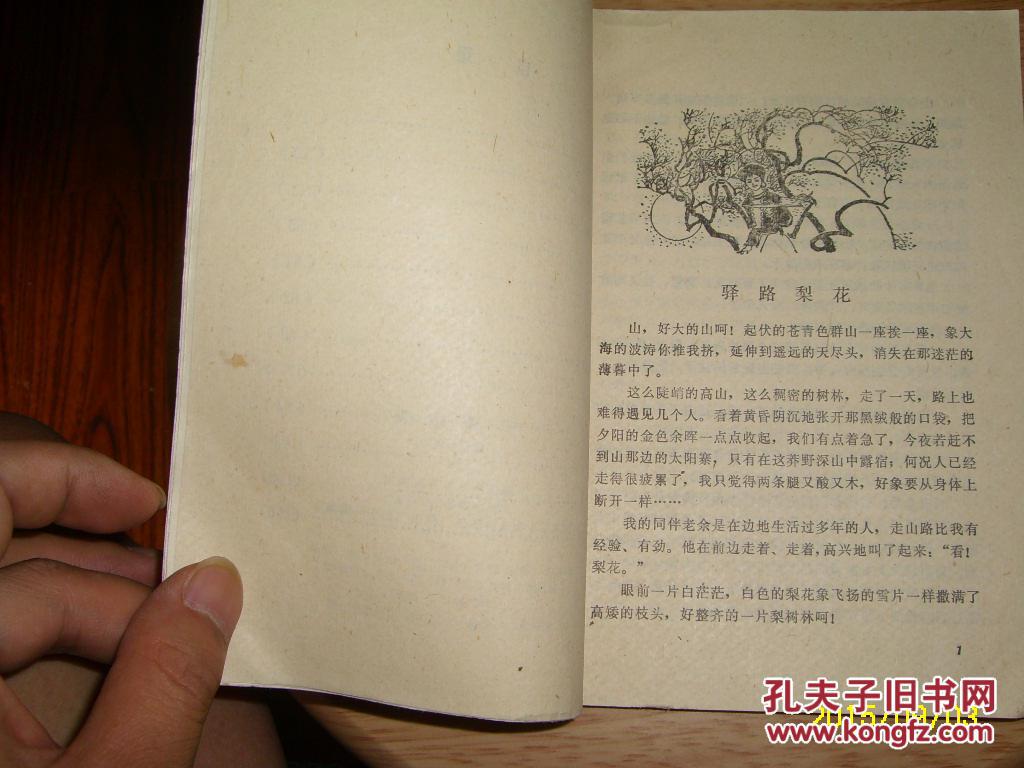 驿路梨花
山，好大的山呵！起伏的苍青色群山一座挨一座，象大
海的波涛你推我挤，延伸到遥远的天尽头，消失在那迷茫的
薄暮中了。
这么陡峭的高山，这么稠密的树林，走了一天，路上也
难得遇见几个人。看着黄昏阴沉地张开那黑绒般的口袋，把
夕阳的金色余晖一点点收起，我们有点着急了，今夜若赶不
到山那边的太阳寨，只有在这莽野深山中露宿；何况人已经
走得很疲累了，我只觉得两条腿又酸又木，好象要从身体上
断开一样……
我的同伴老余是在边地生活过多年的人，走山路比我有
经验、有劲。他在前边走着、走着，高兴地叫了起来：“看！
梨花。”
眼前一片白茫茫，白色的梨花象飞扬的雪片一样撒满了
高矮的枝头，好整齐的一片梨树林呵！
1
孔夫子旧书网
www.kongfz.com